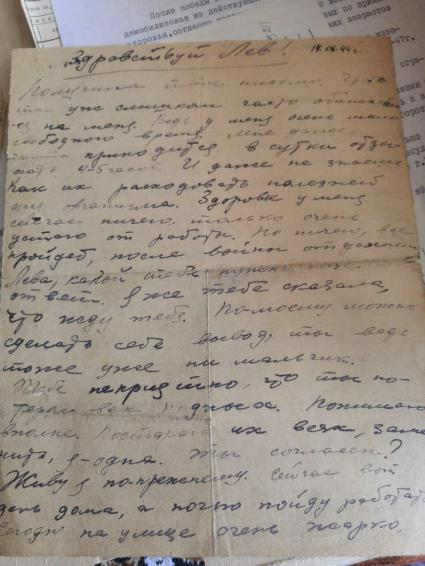 После победы
демобилизован из действую
здоровья, согласно
47г.
Здравствуй Лев! 14.06.44г.
Получила твоё письмо. Что
ты уж слишком часто обижаешь
ся на меня. Ведь у меня очень мало
свободного времени. Мне даже
приходится в сутки отды
хать 4-5 часов. И даже не знаешь
как их расходовать полезней
для организма. Здоровье у меня
сейчас ничего, только очень
устаю от работы. Но ничего, всё
пройдёт, после войны отдохнём
Лёва, какой тебе нужен ещё
ответ. Я же тебе сказала,
что жду тебя. По-моему можно
сделать себе вывод, ты ведь
тоже уже ни мальчик.
Тебе неприятно, что ты по-
терял всех родных. Понимаю
вполне. Постараюсь их всех, заме
нить, я-одна. Ты согласен?
Живу я по-прежнему. Сейчас вот
день дома, а ночью пойду работать
Сегодня на улице очень жарко,